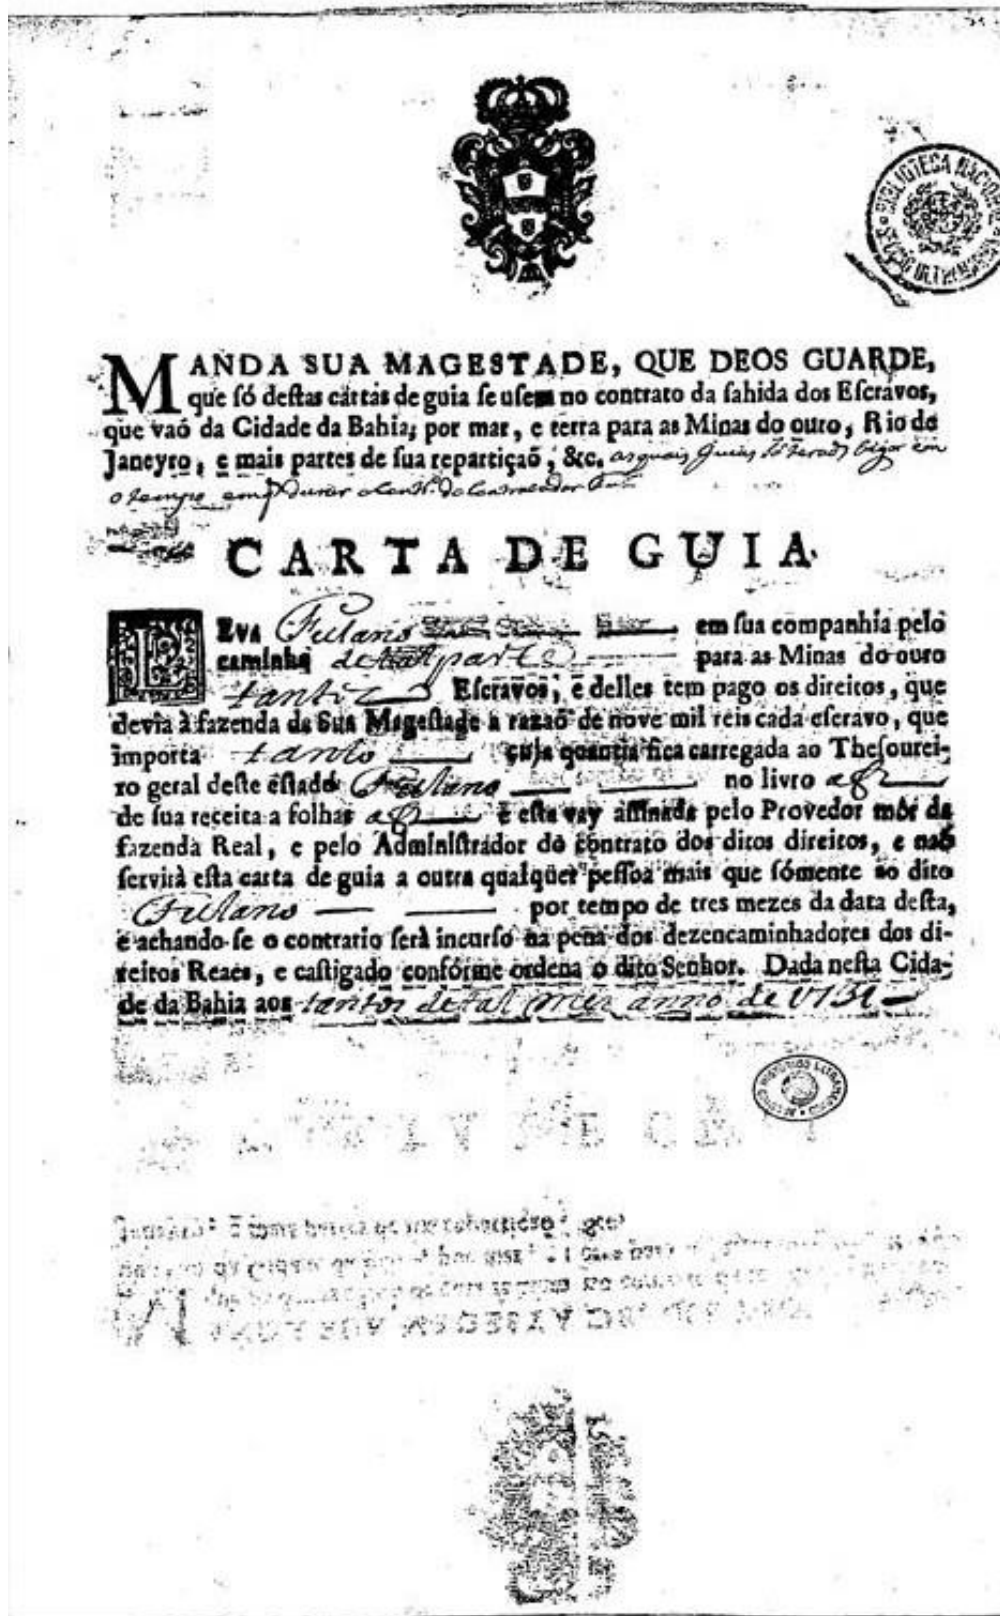 BIBLIOTECA NACIONAL
MANDA SUA MAGESTADE, QUE DEOS GUARDE,
que só destas cartas de guia se usem no contrato da sahida dos Escravos,
que vaõ da Cidade da Bahia, por mar, e terra para as Minas do ouro, Rio de
Janeyro, e mais partes de sua repartiçaõ, &c. as quais Guias
o tempo durar
CARTA DE GUIA
LEva Fulano em sua companhia pelo
caminho de tal parte para as Minas do ouro
tantos Escravos, e delles tem pago os direitos, que
devia à fazenda de Sua Magestade a razaõ de nove mil reis cada escravo, que
importa tanto cuja quantia fica carregada ao Thesourei-
ro geral deste estado Fulano no livro a f
de sua receita a folhas a f e esta vay assinada pelo Provedor mór da
fazenda Real, e pelo Administrador do contrato dos ditos direitos, e naõ
servirà esta carta de guia a outra qualquer pessoa mais que sómente ao dito
Fulano por tempo de tres mezes da data desta,
e achando-se o contrario serà incurso na pena dos dezencaminhadores dos di-
reitos Reaes, e castigado confórme ordena o dito Senhor. Dada nesta Cida-
de da Bahia aos tantos de tal mez anno de